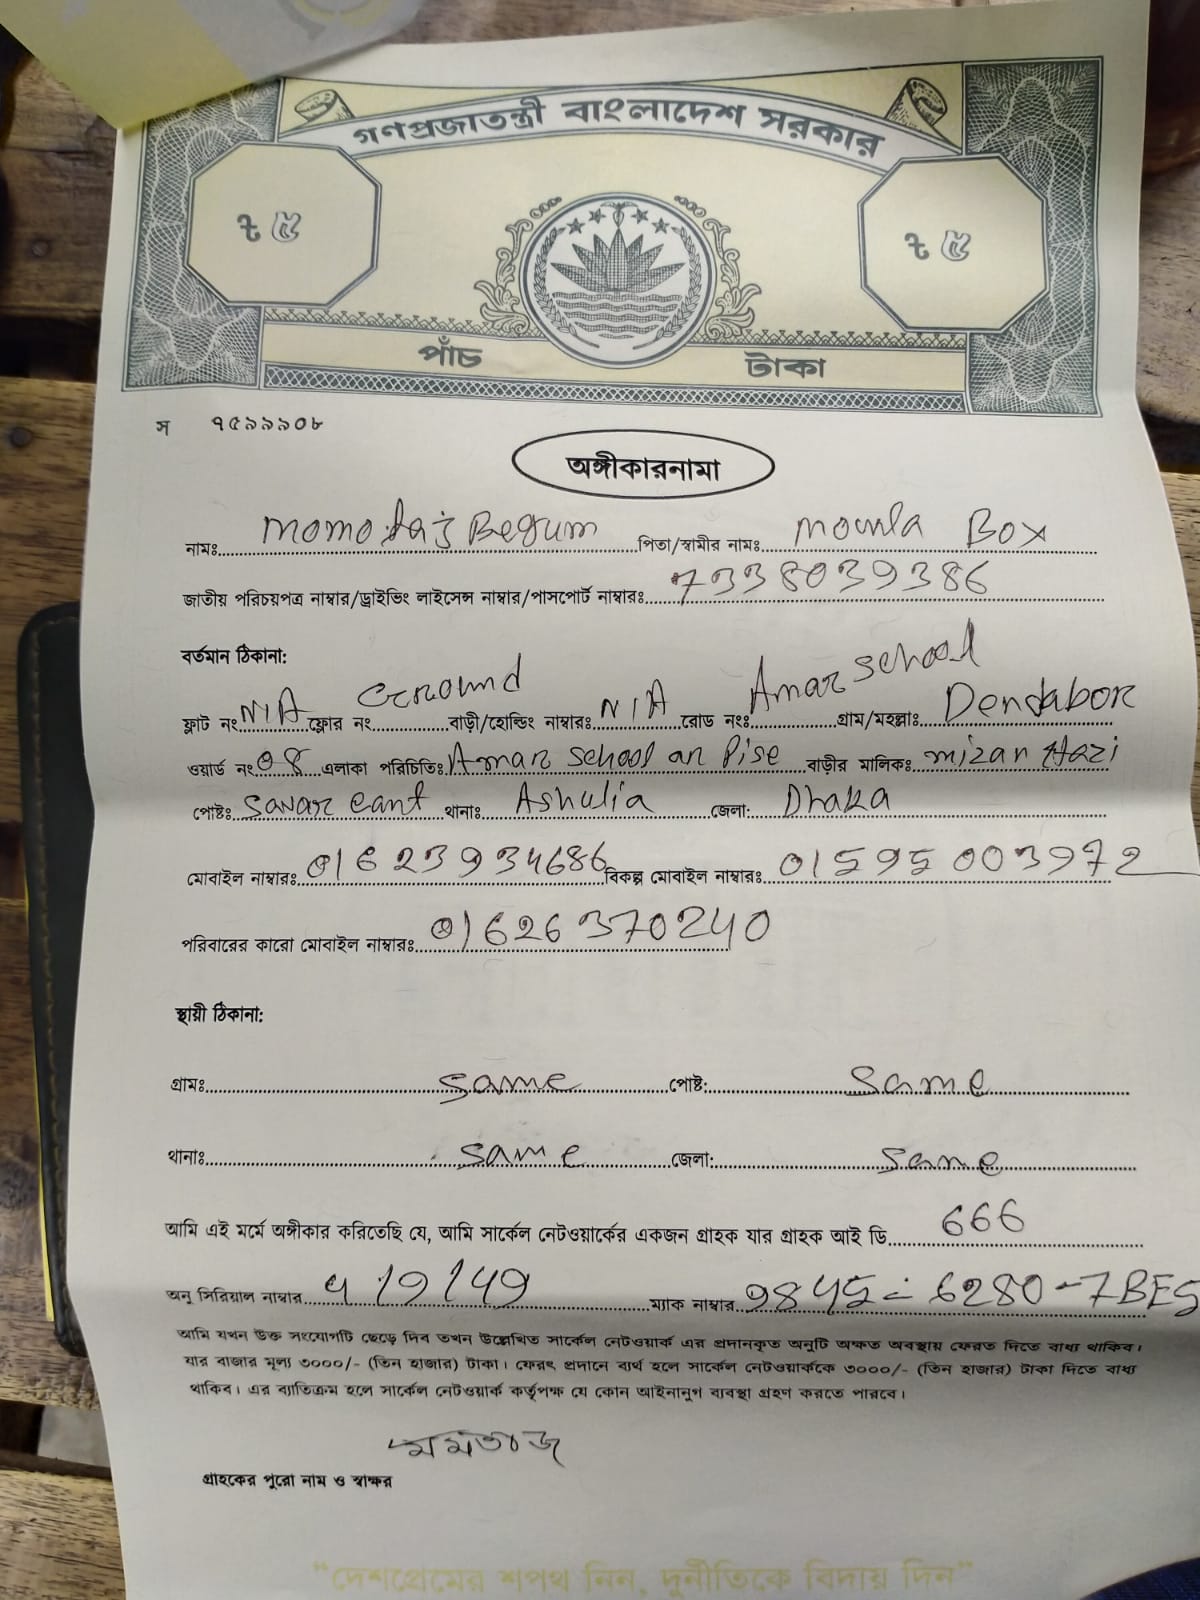 গণপ্রজাতন্ত্রী বাংলাদেশ সরকার
৳ ৫ ৳ ৫
পাঁচ টাকা
স ৭৫৯৯৯০৮
অঙ্গীকারনামা
নামঃ Momotaj Begum পিতা/স্বামীর নামঃ Moula Box
জাতীয় পরিচয়পত্র নাম্বার/ড্রাইভিং লাইসেন্স নাম্বার/পাসপোর্ট নাম্বারঃ 7338039386
বর্তমান ঠিকানা:
ফ্লাট নং N/A ফ্লোর নং Ground বাড়ী/হোল্ডিং নাম্বারঃ N/A রোড নংঃ Amar School গ্রাম/মহল্লাঃ Dendabor
ওয়ার্ড নং 08 এলাকা পরিচিতিঃ Amar School বাড়ীর মালিকঃ Mizan Hazi
পোষ্টঃ Savar Cant থানাঃ Ashulia জেলা: Dhaka
মোবাইল নাম্বারঃ 01623934686 বিকল্প মোবাইল নাম্বারঃ 01595003972
পরিবারের কারো মোবাইল নাম্বারঃ 01626370240
স্থায়ী ঠিকানা:
গ্রামঃ same পোষ্ট: same
থানাঃ same জেলা: same
আমি এই মর্মে অঙ্গীকার করিতেছি যে, আমি সার্কেল নেটওয়ার্কের একজন গ্রাহক যার গ্রাহক আই ডি 666
অনু সিরিয়াল নাম্বার 419149 ম্যাক নাম্বার 9845-6280-7BE5
আমি যখন উক্ত সংযোগটি ছেড়ে দিব তখন উল্লেখিত সার্কেল নেটওয়ার্ক এর প্রদানকৃত অনুটি অক্ষত অবস্থায় ফেরত দিতে বাধ্য থাকিব।
যার বাজার মূল্য ৩০০০/- (তিন হাজার) টাকা। ফেরৎ প্রদানে ব্যর্থ হলে সার্কেল নেটওয়ার্ককে ৩০০০/- (তিন হাজার) টাকা দিতে বাধ্য
থাকিব। এর ব্যতিক্রম হলে সার্কেল নেটওয়ার্ক কর্তৃপক্ষ যে কোন আইনানুগ ব্যবস্থা গ্রহণ করতে পারবে।
মমতাজ
গ্রাহকের পুরো নাম ও স্বাক্ষর
“দেশপ্রেমের শপথ নিন, দুর্নীতিকে বিদায় দিন”